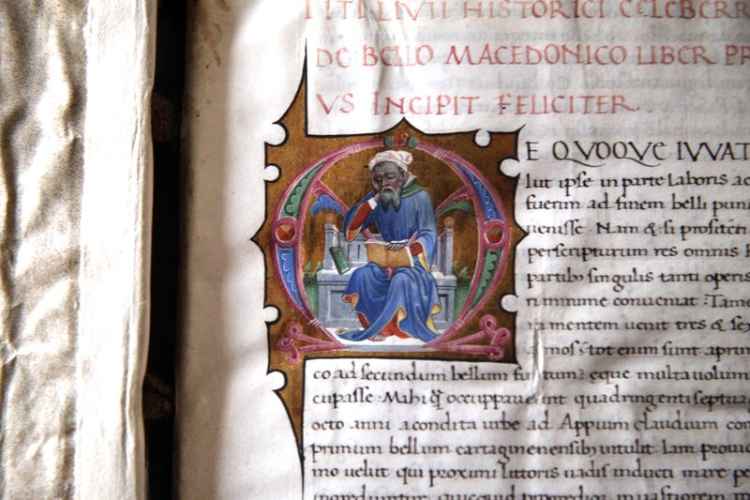 TITI LIVII HISTORICI CELEBERR
DE BELLO MACEDONICO LIBER PR
VS INCIPIT FELICITER
E QVOQVE IVVAT
lut ipse in parte laboris ac
fuerim ad finem belli puni
uenisse. Nam & si profiteri
perscripturum res omnis
partib singulis tanti operis
minime conueniat: Tam
mentem uenit tres & se
annos: tot enim sunt a prim
co ad secundum bellum eque multa uolum
cupasse. Mahi occuppauerint quadringenti septua
octo anni a condita urbe ad Appium claudium con
primum bellum cartaginensibus intulit. Iam proui
mo uelut qui proximi littoris uadis inducti mare pe